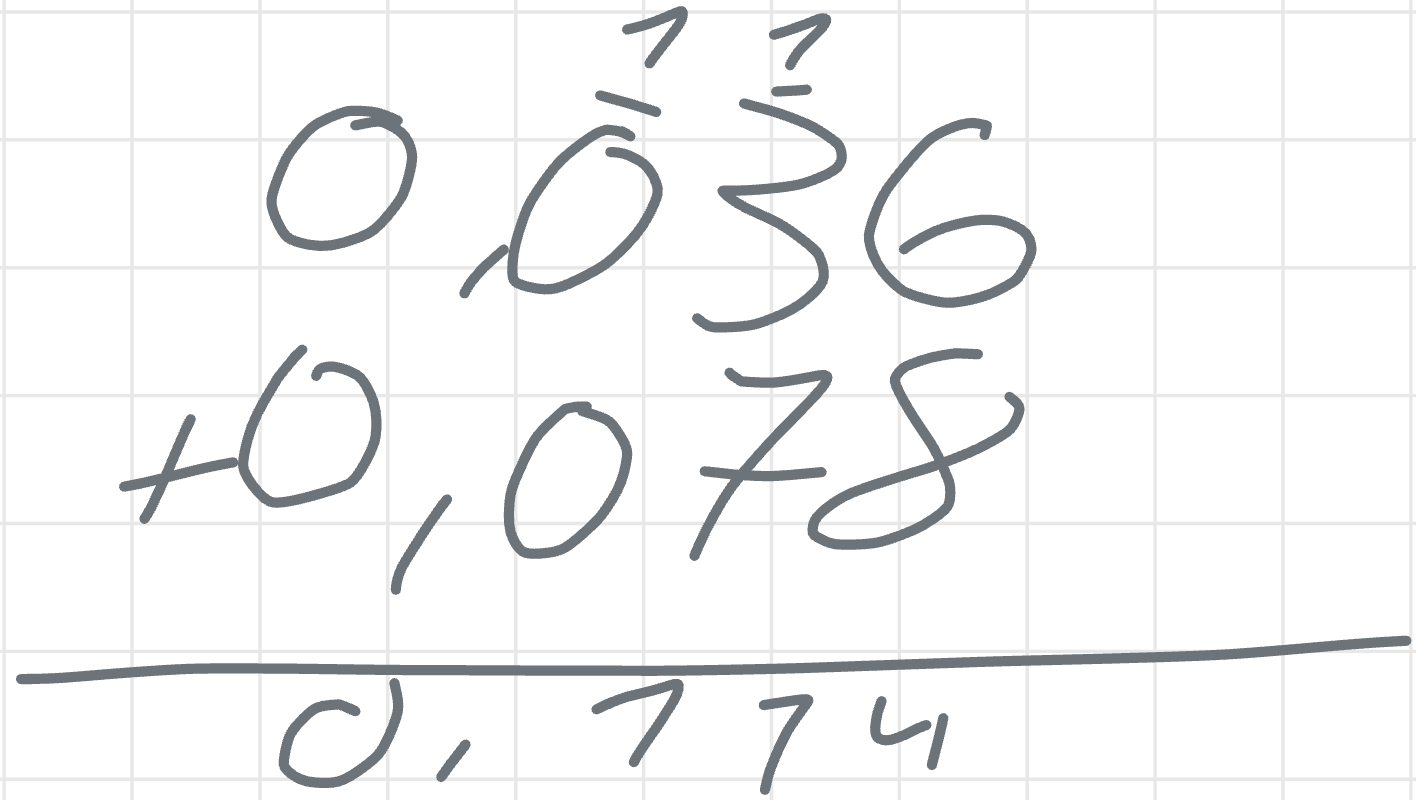 1 1
0,036
+0,078
0,114